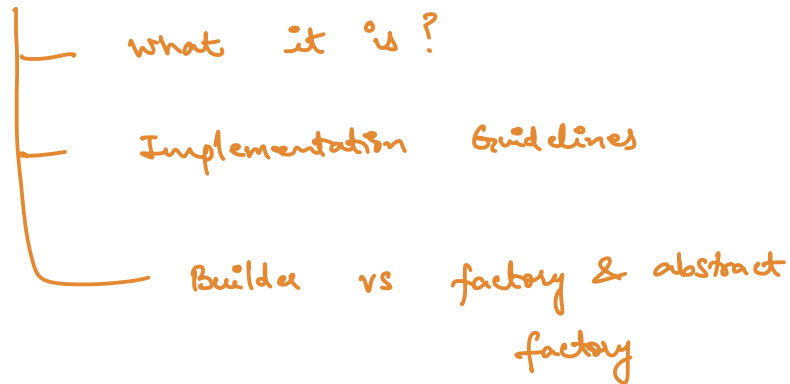 what it is?
Implementation Guidelines
Builder vs factory & abstract
factory